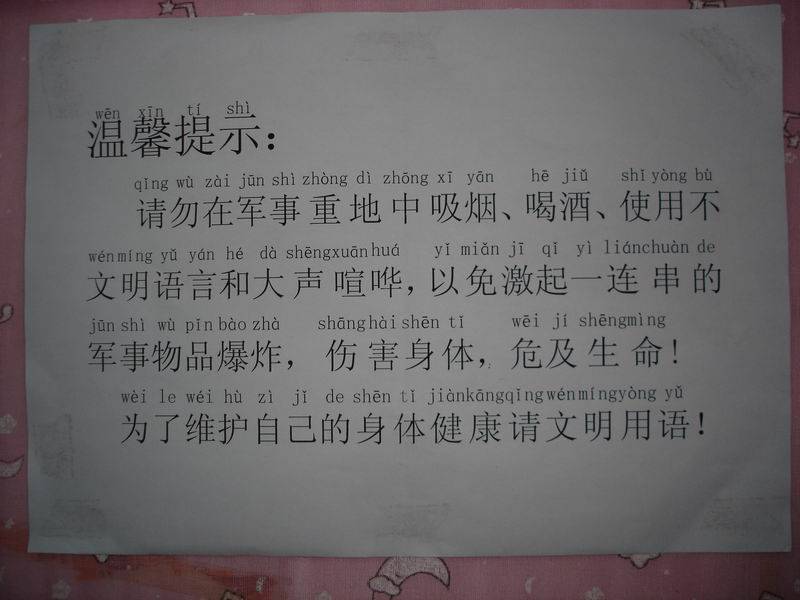 wēn xīn tí shì
温馨提示：
qǐng wù zài jūn shì zhòng dì zhōng xī yān hē jiǔ shǐ yòng bù
请勿在军事重地中吸烟、喝酒、使用不
wén míng yǔ yán hé dà shēng xuān huá yǐ miǎn jī qǐ yì lián chuàn de
文明语言和大声喧哗，以免激起一连串的
jūn shì wù pǐn bào zhà shāng hài shēn tǐ wēi jí shēng mìng
军事物品爆炸，伤害身体，危及生命！
wèi le wéi hù zì jǐ de shēn tǐ jiàn kāng qǐng wén míng yòng yǔ
为了维护自己的身体健康请文明用语！